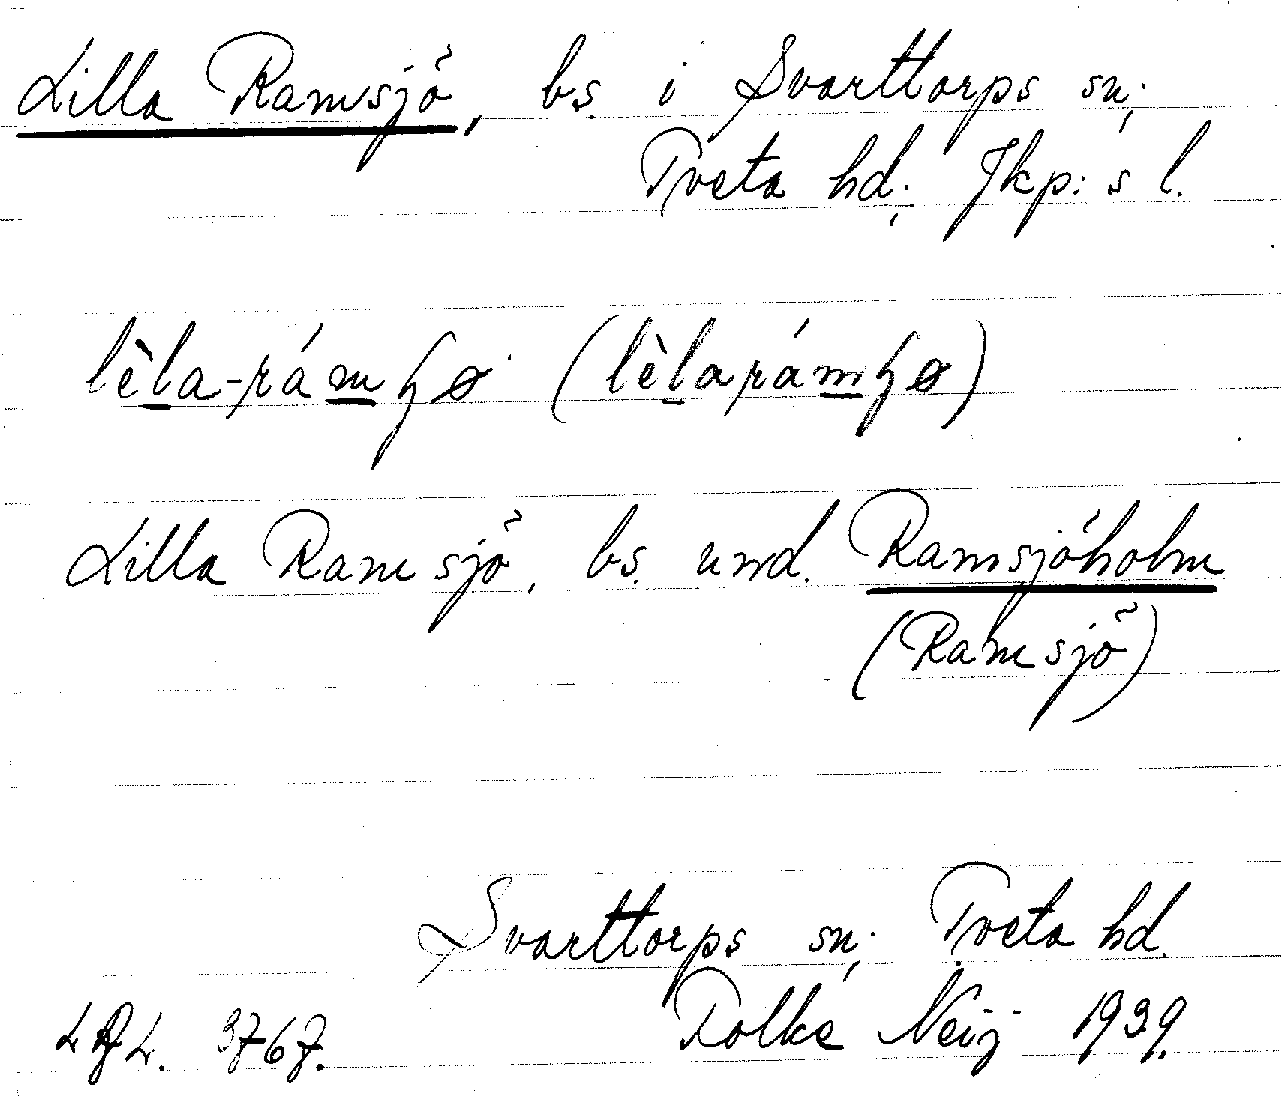 Lilla Ramsjö, bs. i Svarttorps sn;
Tveta hd; Jkp:s l.
lèla-rámɧø (lèlarámɧø)
Lilla Ramsjö, bs. und. Ramsjöholm
(Ramsjö)
Svarttorps sn; Tveta hd.
Folke Neij 1939.
3767.